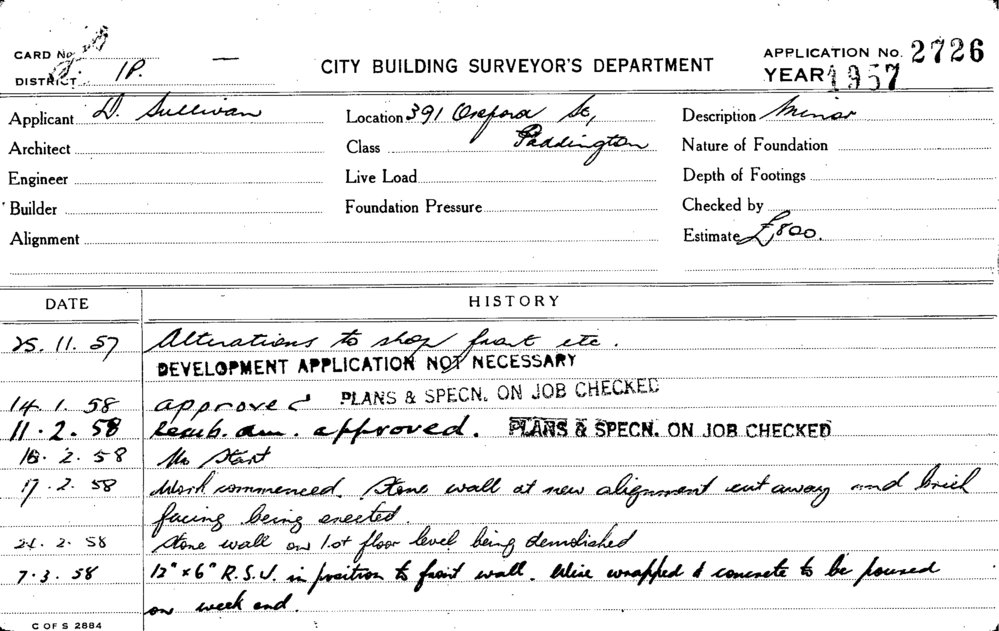 CARD No.
DISTRICT IP. —
CITY BUILDING SURVEYOR'S DEPARTMENT
APPLICATION No. 2726
YEAR 1957
Applicant D. Sullivan
Location 391 Oxford St,
Description Minor
Architect
Class Paddington
Nature of Foundation
Engineer
Live Load
Depth of Footings
Builder
Foundation Pressure
Checked by
Alignment
Estimate £800.
DATE
HISTORY
25. 11. 57 Alterations to shop front etc.
DEVELOPMENT APPLICATION NOT NECESSARY
14. 1. 58 approved PLANS & SPECN. ON JOB CHECKED
11. 2. 58 Resub. am. approved. PLANS & SPECN. ON JOB CHECKED
2. 58 No Start
17. 2. 58 Work commenced. Stone wall at new alignment cut away and brick
facing being erected.
2. 58 Stone wall on 1st floor level being demolished
7. 3. 58 12" x 6" R.S.J. in position to front wall. Wire wrapped & concrete to be poured
on week end.
C OF S 2884